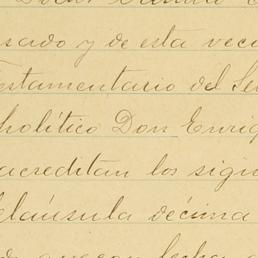 sado y de esta veci
Testamentario del Se
político Don Enriq
acreditan los sigui
cláusula décima